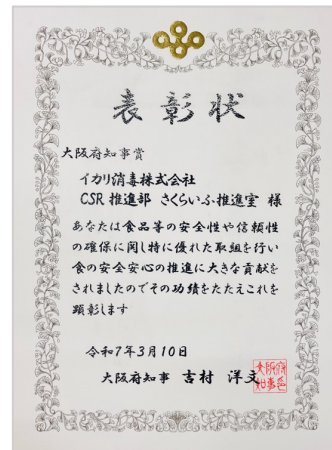 表彰状
大阪府知事賞
イカリ消毒株式会社
CSR 推進部 さくらいふ推進室 様
あなたは食品等の安全性や信頼性
の確保に関し特に優れた取組を行い
食の安全安心の推進に大きな貢献を
されましたのでその功績をたたえこれを
顕彰します
令和7年3月10日
大阪府知事 吉村 洋文
大阪府
知事之印